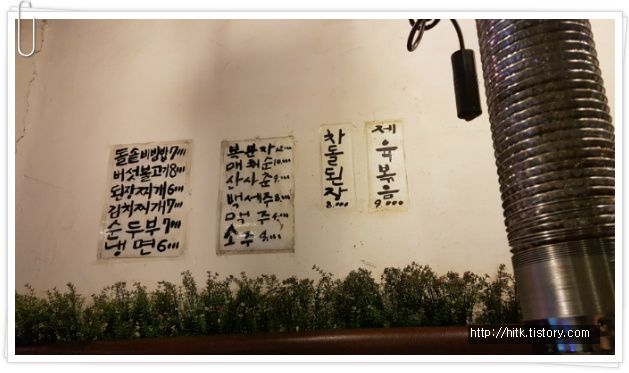 돌솥비빔밥 7000
버섯불고기 8000
된장찌개 6000
김치찌개 7000
순두부 7000
냉면 6000
복분자 12000
매취순 10,000
산사춘 9,000
백세주 8,000
맥주 4,000
소주 4,000
차
돌
된
장
8,000
제
육
볶
음
9000
http://hitk.tistory.com